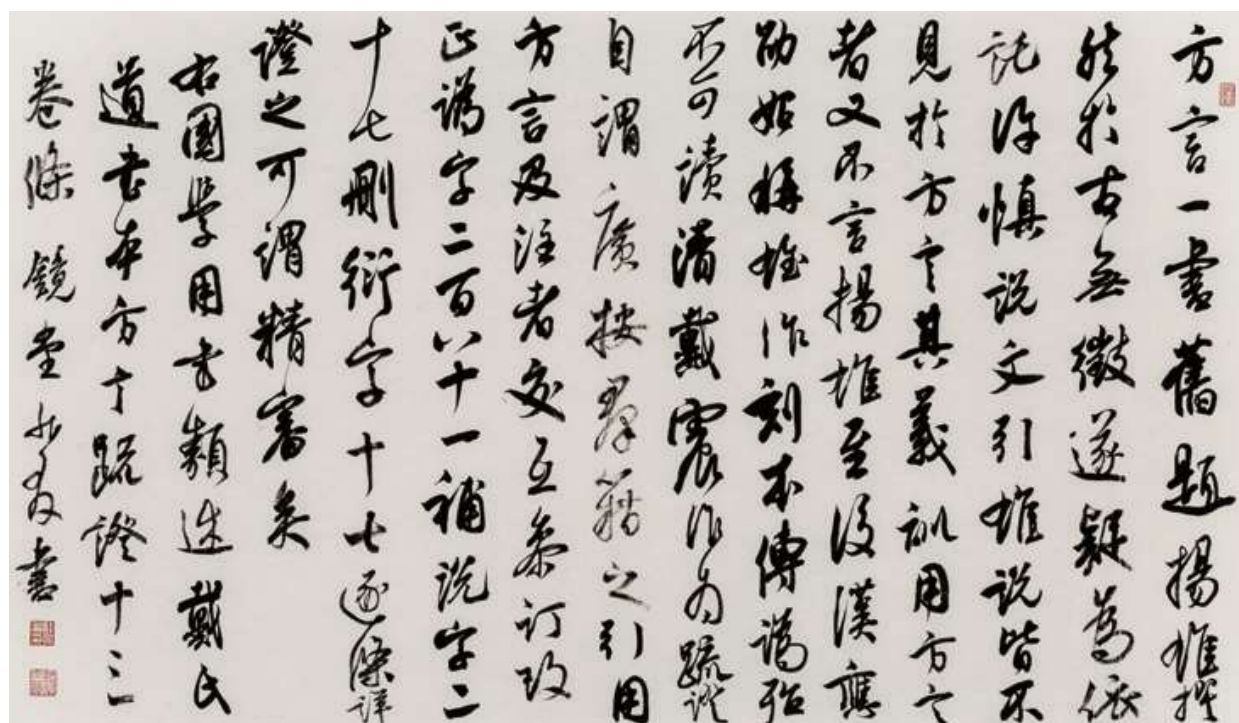 方言一書舊題揚雄撰
然於古無徵遂疑為依
託許慎說文引雄說皆不
見於方言其義訓用方言
者又不言揚雄至後漢應
劭始稱雄作刻本傳譌殆
不可讀清戴震作為疏證
自謂廣按群籍之引用
方言及注者交互參訂改
正譌字二百八十一補脫字二
十七刪衍字十七逐條詳
證之可謂精審矣
右國學用書類述戴氏
遺書本方言疏證十三
卷條 鏡堂 書